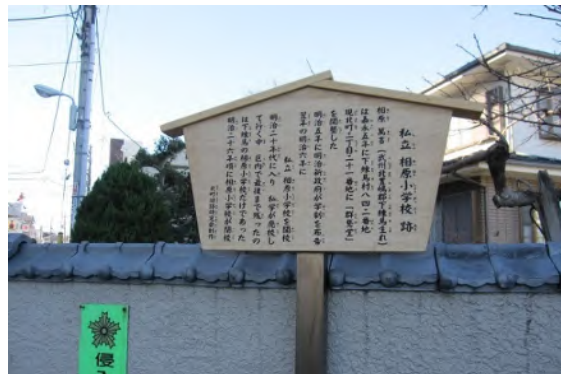 私立 相原小学校 跡
相原 (武州北豊嶋郡下練馬生れ)
は嘉永五年に下練馬村八四二番地
現北町二丁目二十一番地に
を開塾した
明治五年に明治新政府が学制を布告
翌年の明治六年に
私立 相原小学校を開校
明治二十年代に入り 私学が廃校し
て行く中 区内で最後まで残ったの
は下練馬の相原小学校だけであった
明治二十六年頃に相原小学校が閉校
侵